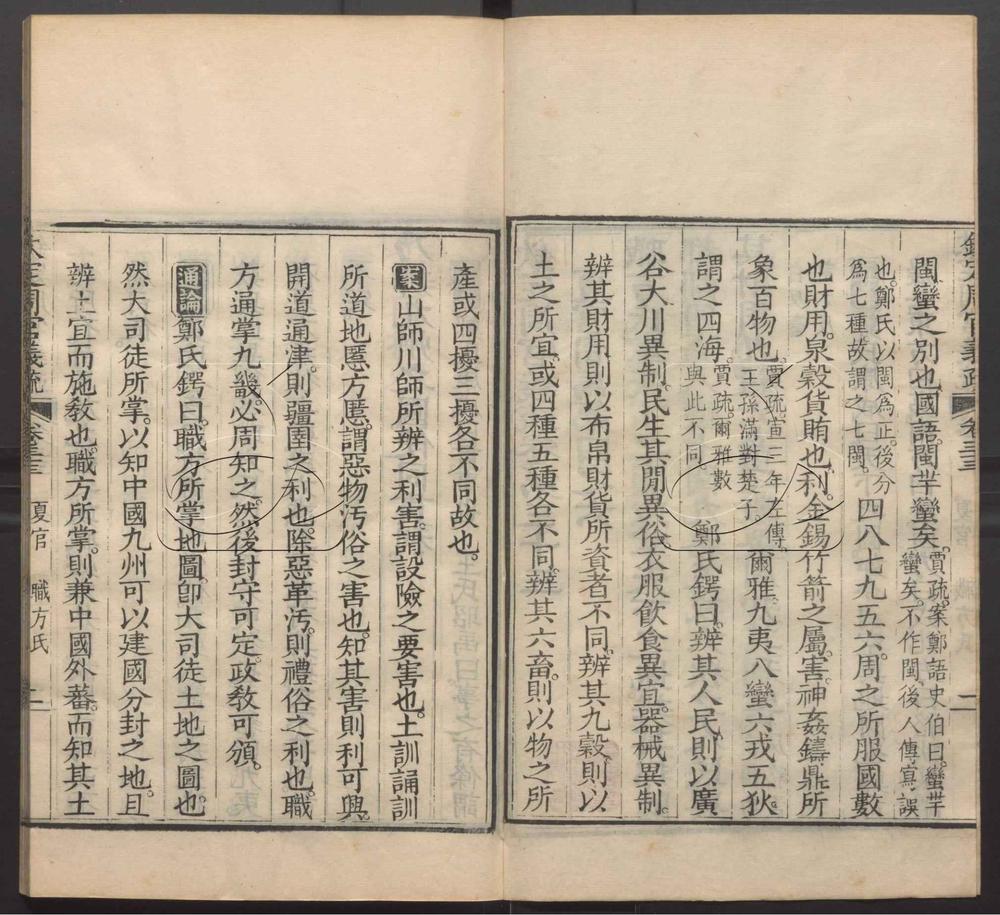 閩蠻之別也國語閩芈蠻矣賈疏案鄭語史伯曰蠻芈蠻矣不作閩後人傳寫誤
也鄭氏以閩爲正後分爲七種故謂之七閩四八七九五六周之所服國數
也財用泉穀貨賄也利金錫竹箭之屬害神姦鑄鼎所
象百物也賈疏宣三年左傳王孫滿對楚子爾雅九夷八蠻六戎五狄
謂之四海賈疏爾雅數與此不同鄭氏鍔曰辨其人民則以廣
谷大川異制民生其閒異俗衣服飲食異宜器械異制
辨其財用則以布帛財貨所資者不同辨其九穀則以
土之所宜或四種五種各不同辨其六畜則以物之所
產或四擾三擾各不同故也
案山師川師所辨之利害謂設險之要害也土訓誦訓
所道地慝方慝謂惡物汚俗之害也知其害則利可興
開道通津則疆圉之利也除惡革汚則禮俗之利也職
方通掌九畿必周知之然後封守可定政敎可頒
通論鄭氏鍔曰職方所掌地圖卽大司徒土地之圖也
然大司徒所掌以知中國九州可以建國分封之地且
辨土宜而施敎也職方所掌則兼中國外蕃而知其土
欽定周官義疏 卷三十三 夏官 職方氏 二